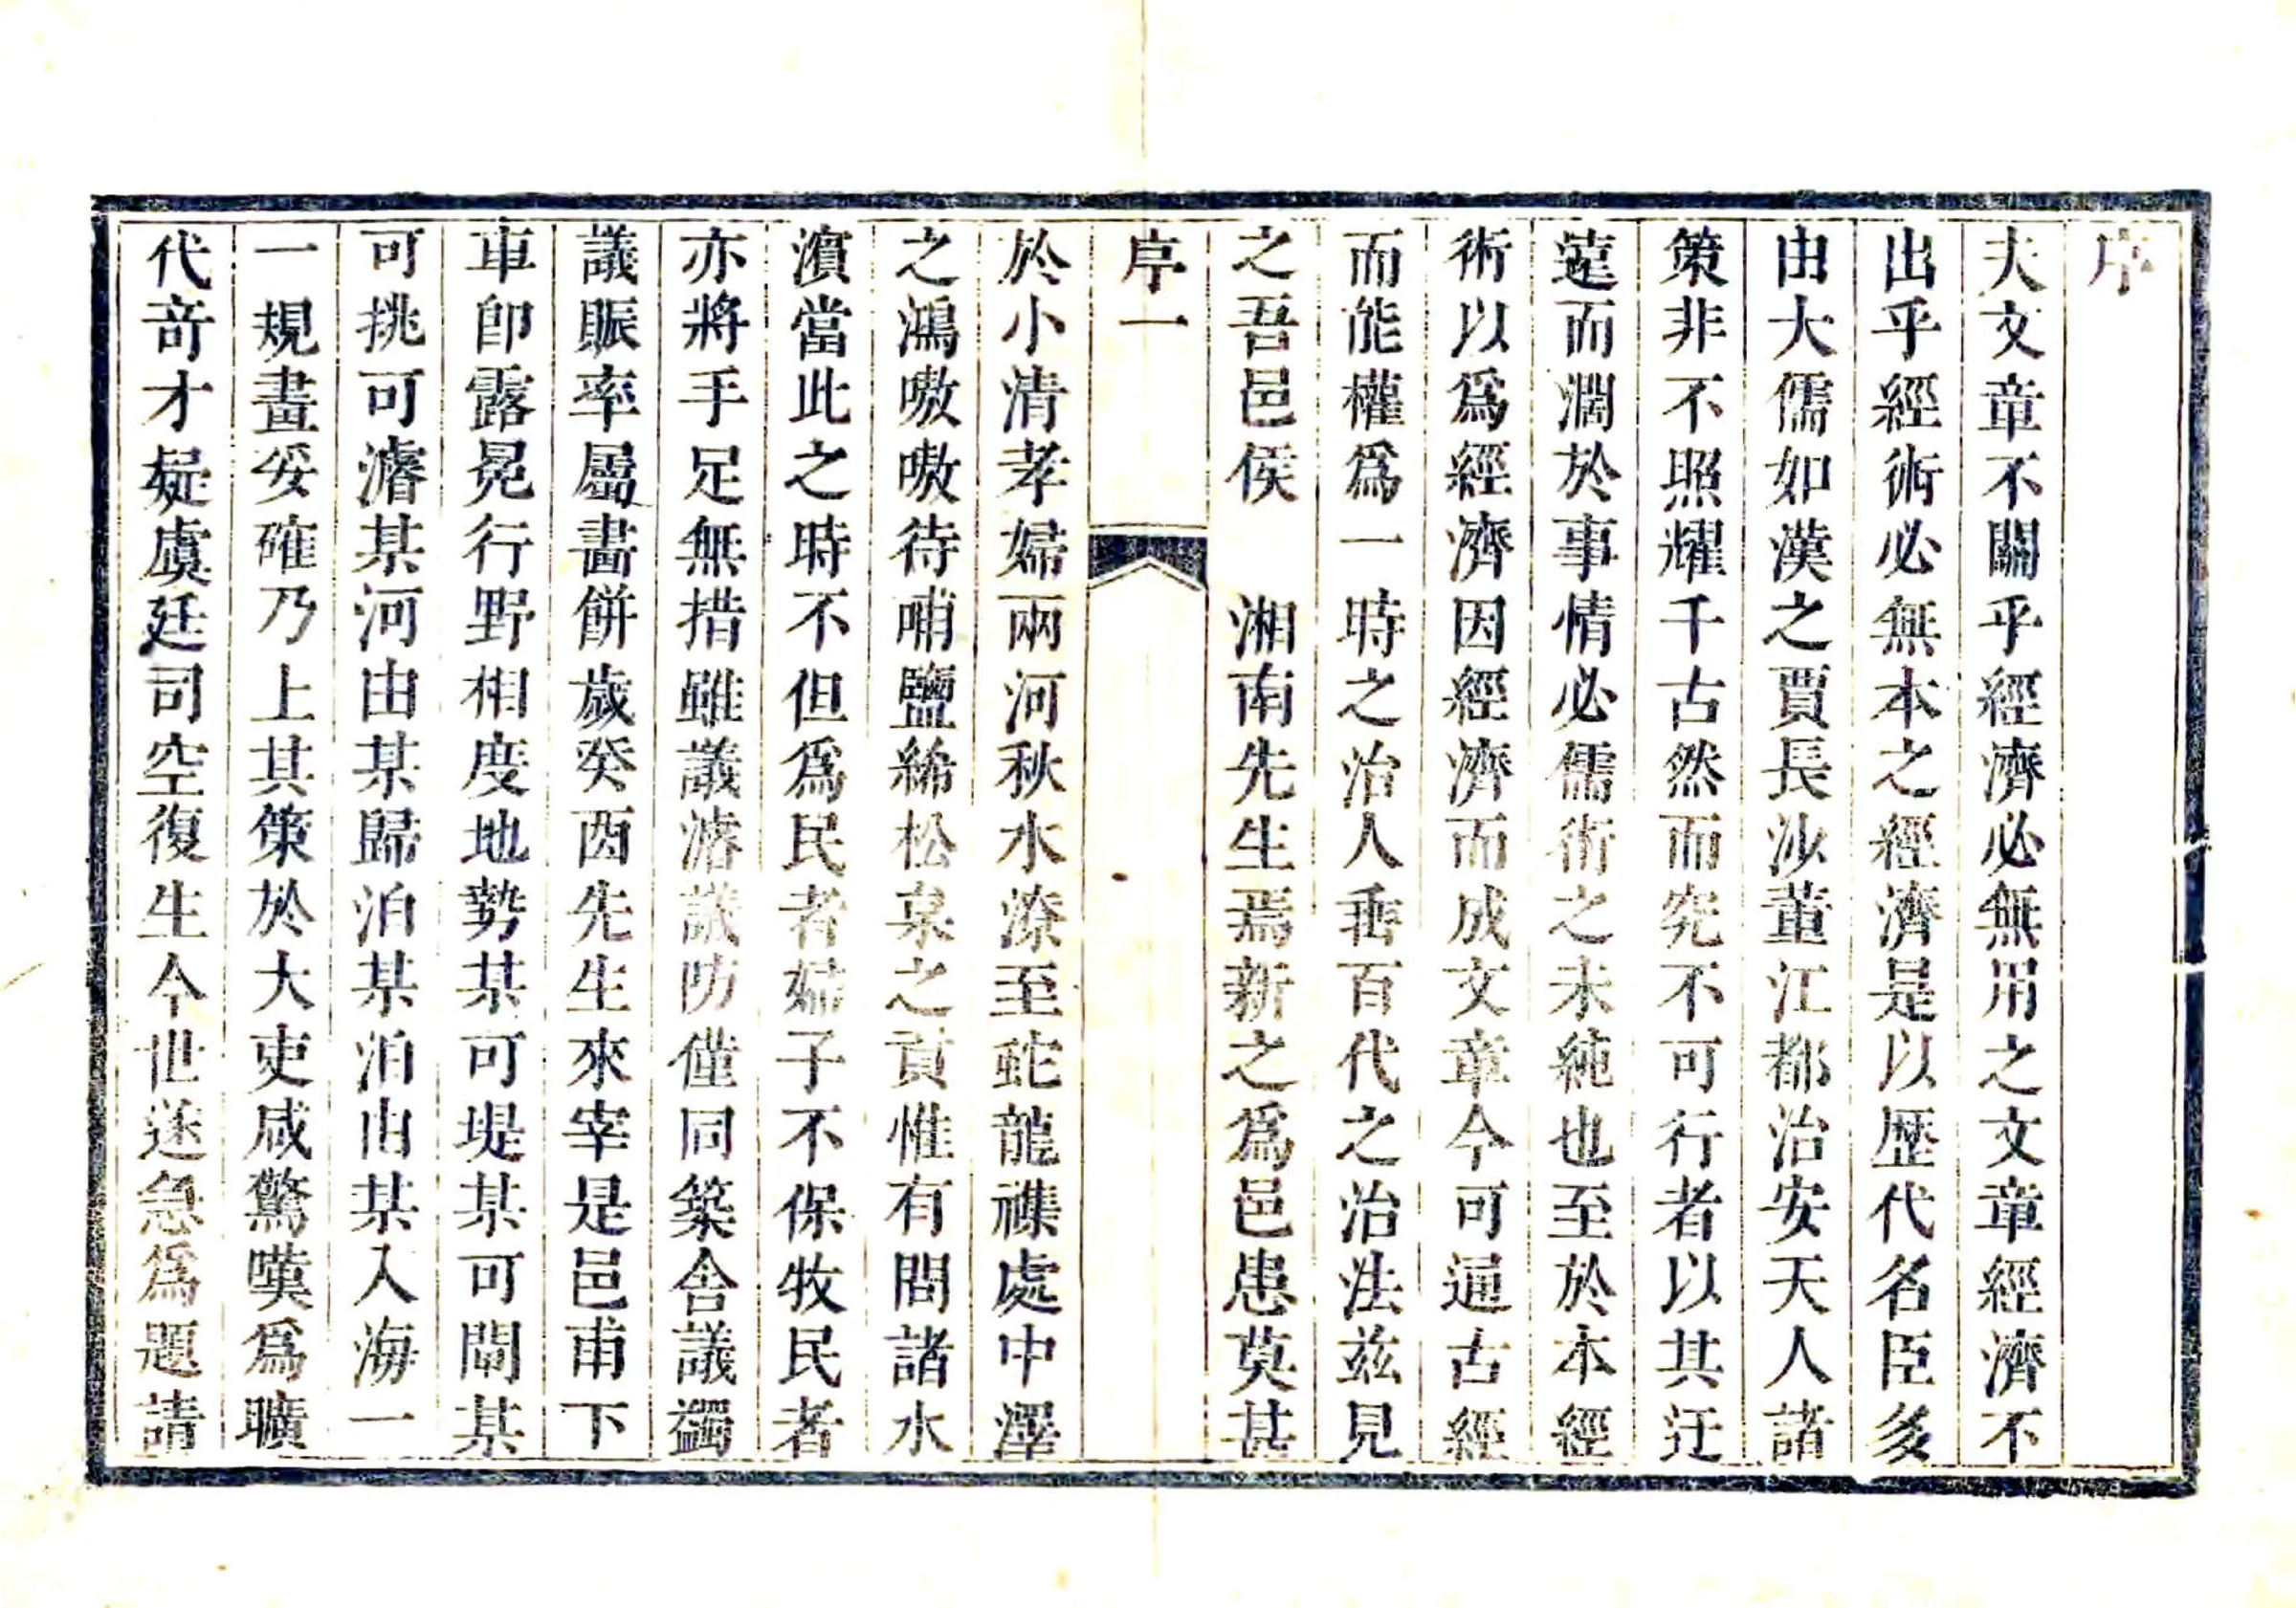 序
夫文章不關乎經濟必無用之文章經濟不
出乎經術必無本之經濟是以歷代名臣多
由大儒如漢之賈長沙董江都治安天人諸
策非不照耀千古然而究不可行者以其迂
遠而濶於事情必儒術之未純也至於本經
術以爲經濟因經濟而成文章今可通古經
而能權爲一時之治人垂百代之治法兹見
之吾邑侯　湘南先生焉新之爲邑患莫甚
序一
於小清孝婦兩河秋水潦至蛇龍襍處中澤
之鴻嗷嗷待哺鹽絺松枲之貢惟有問諸水
濱當此之時不但爲民者婦子不保牧民者
亦將手足無措雖議議濬議防僅同築舍議蠲
議賑率屬畫餅歲癸酉先生來宰是邑甫下
車卽露冕行野相度地勢某可堤某可閘某
可挑可濬某河由某歸泊某泊由某入海一
一規畫妥確乃上其策於大吏咸驚嘆爲曠
代奇才疑虞廷司空復生今世遂急爲題請